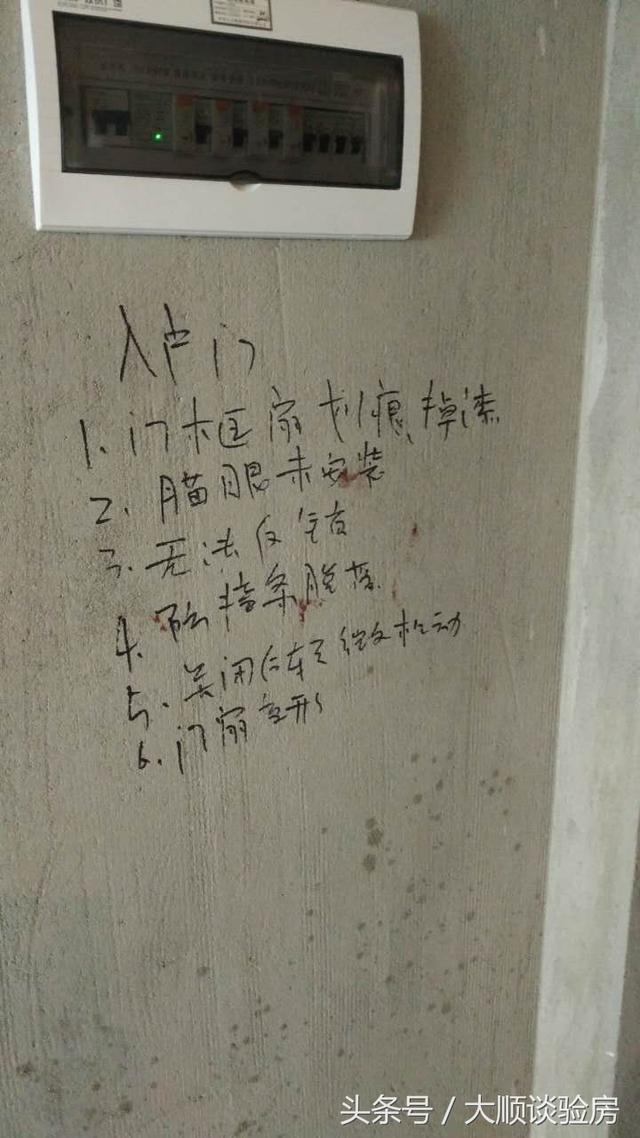 入户门
1、门框扇划痕、掉漆
2、猫眼未安装
3、无法反锁
4、防撞条脱落
5、关闭后轻微松动
6、门扇变形
头条号 / 大顺谈验房